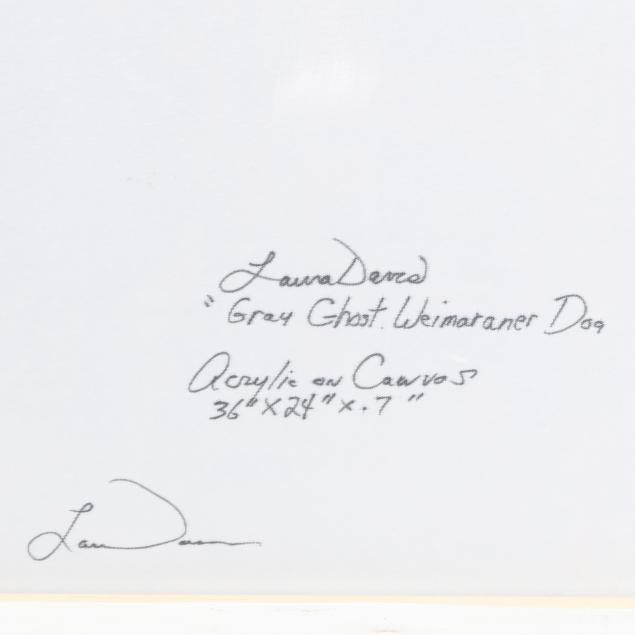 Laura Daves
"Gray Ghost. Weimaraner Dog
Acrylic on Canvas
36" X 24" x .7"